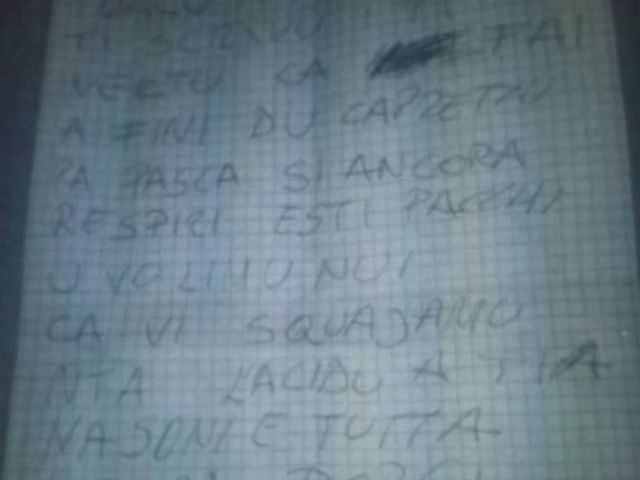 TI SCRIVU
FAI
NEETU CA
A FINI DU CAPRETTU
PA PASCA SI ANCORA
RESPIRI ESTI PACCHI
U VOLIMU NUI
CA VI SQUAJAMO
NTA L'ACIDU A TIA
NASONI E TUTTA